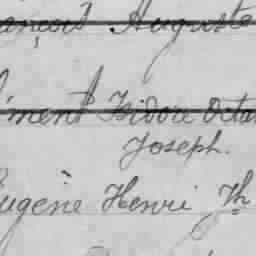 ançois Auguste
lément Isidore Octa
Joseph.
Eugène Henri Th